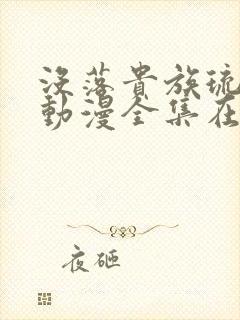 没落貴族琉
動漫全集在
夜砸